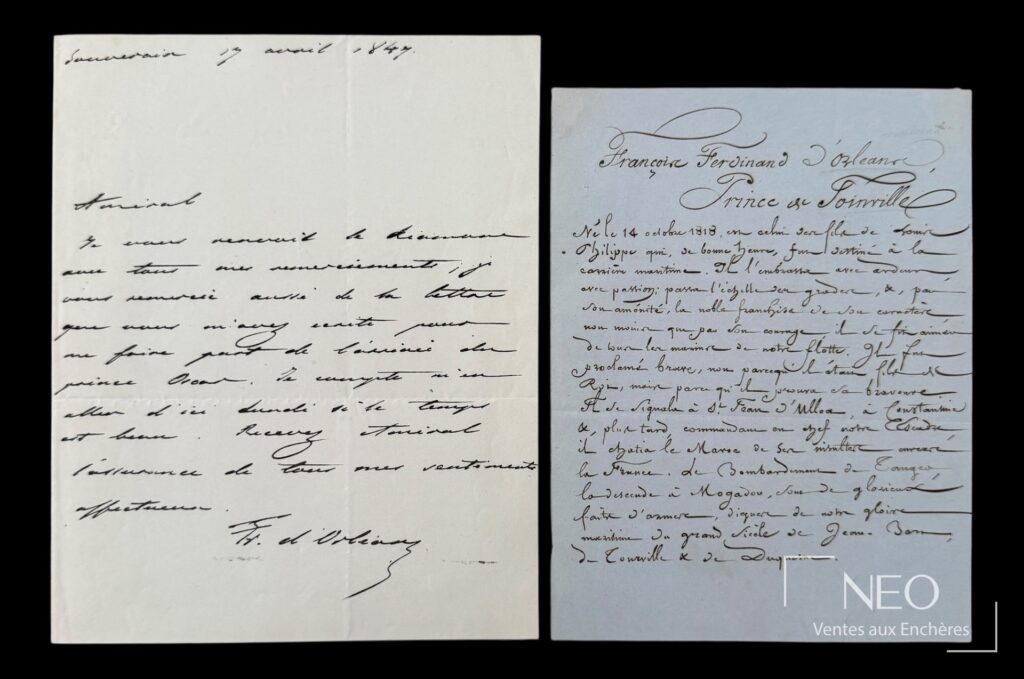 Souverain 17 avril 1847.
Amiral
Je vous renvoie le
avec tous mes remerciements, je
vous remercie aussi de la lettre
que vous m'avez écrite pour
me faire part de l'arrivée du
prince Oscar. Je compte m'en
aller d'ici lundi si le temps
est beau. Recevez Amiral
l'assurance de tous mes sentiments
affectueux.
Fr. d'Orléans
François Ferdinand d'Orléans,
Prince de Joinville
Né le 14 octobre 1818, est celui des fils de Louis
Philippe qui, de bonne heure, fut destiné à la
carrière maritime. Il l'embrassa avec ardeur,
avec passion; passa l'échelle des grades, &, par
son aménité, la noble franchise de son caractère
non moins que par son courage il se fit aimer
de tous les marins de notre flotte. Il fut
proclamé brave, non parcequ'il était fils de
Roi, mais parce qu'il prouva sa bravoure
Il se signala à St Jean d'Ulloa, à Constantine
&, plus tard, commandant en chef notre Escadre
il chatia le Maroc de ses insultes envers
la France. Le Bombardement de Tanger,
la descende à Mogador, sont de glorieux
faits d'armes, dignes de notre gloire
maritime du grand siècle de Jean Bart,
de Tourville & de Duquesne.
NEO
Ventes aux Enchères